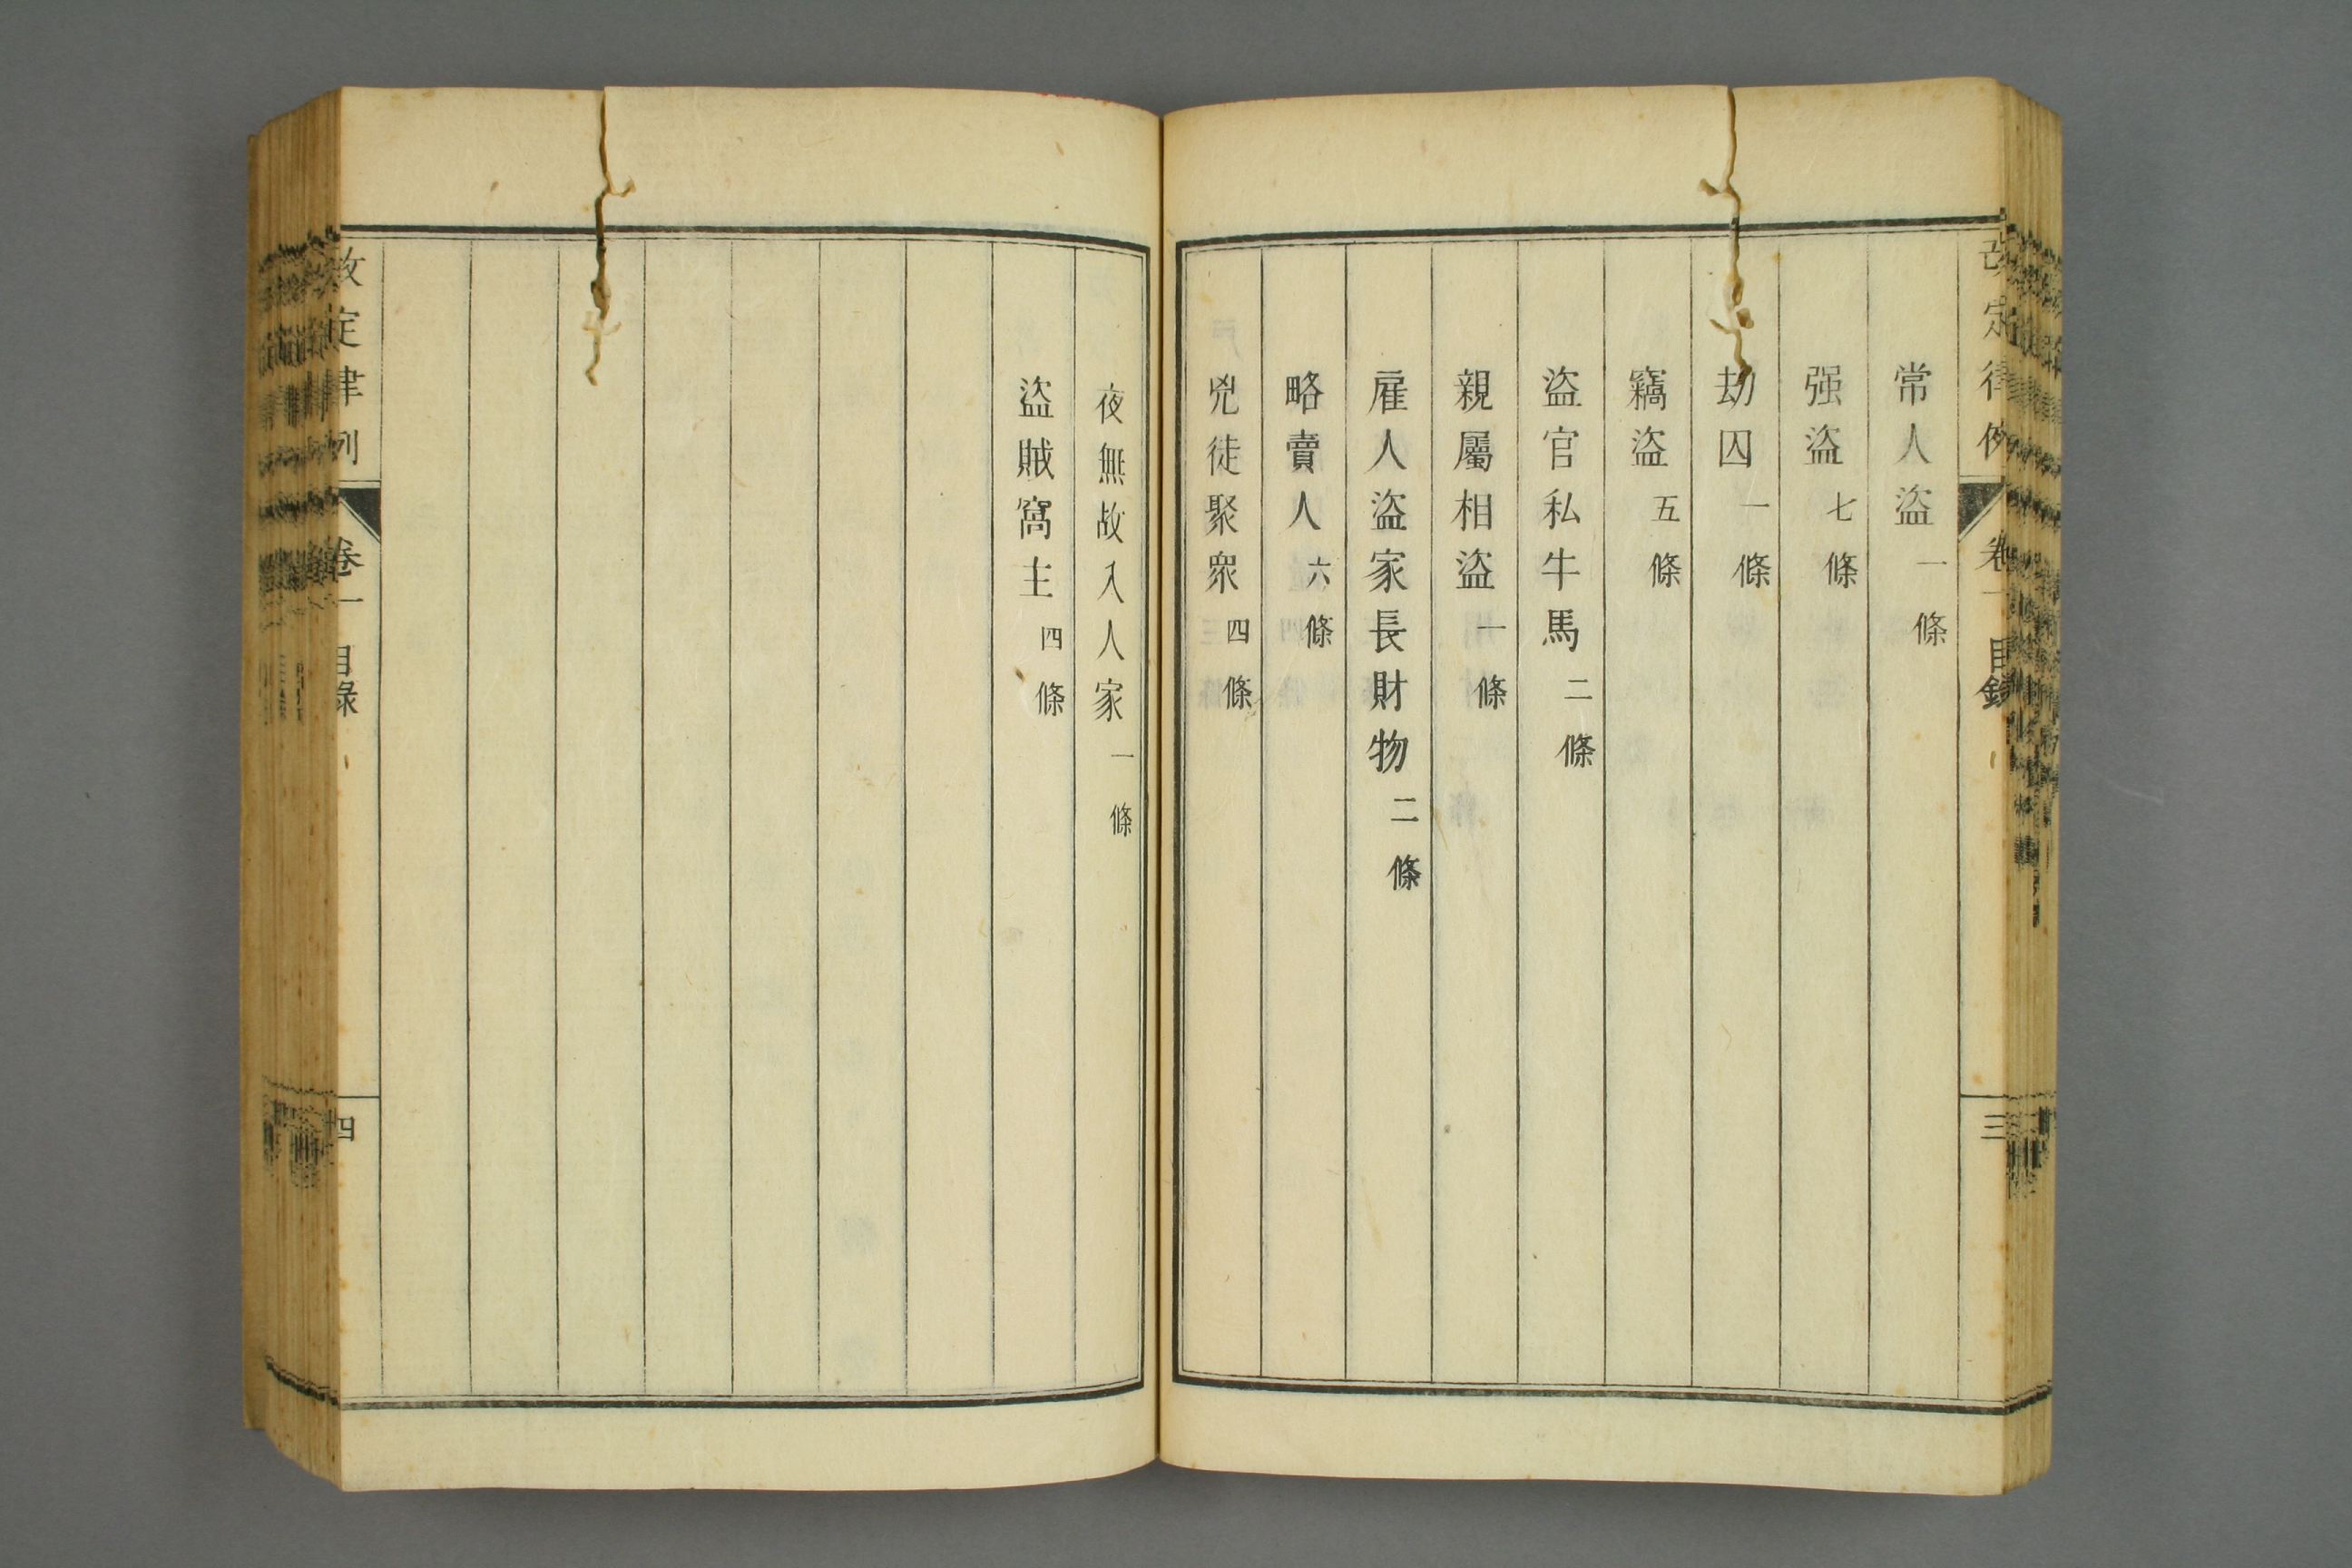 改定律例 卷一 目錄 三
常人盜 一條
强盜 七條
劫囚 一條
竊盜 五條
盜官私牛馬 二條
親屬相盜 一條
雇人盜家長財物 二條
略賣人 六條
兇徒聚衆 四條
夜無故入人家 一條
盜賊窩主 四條
改定律例 卷一 目錄 四